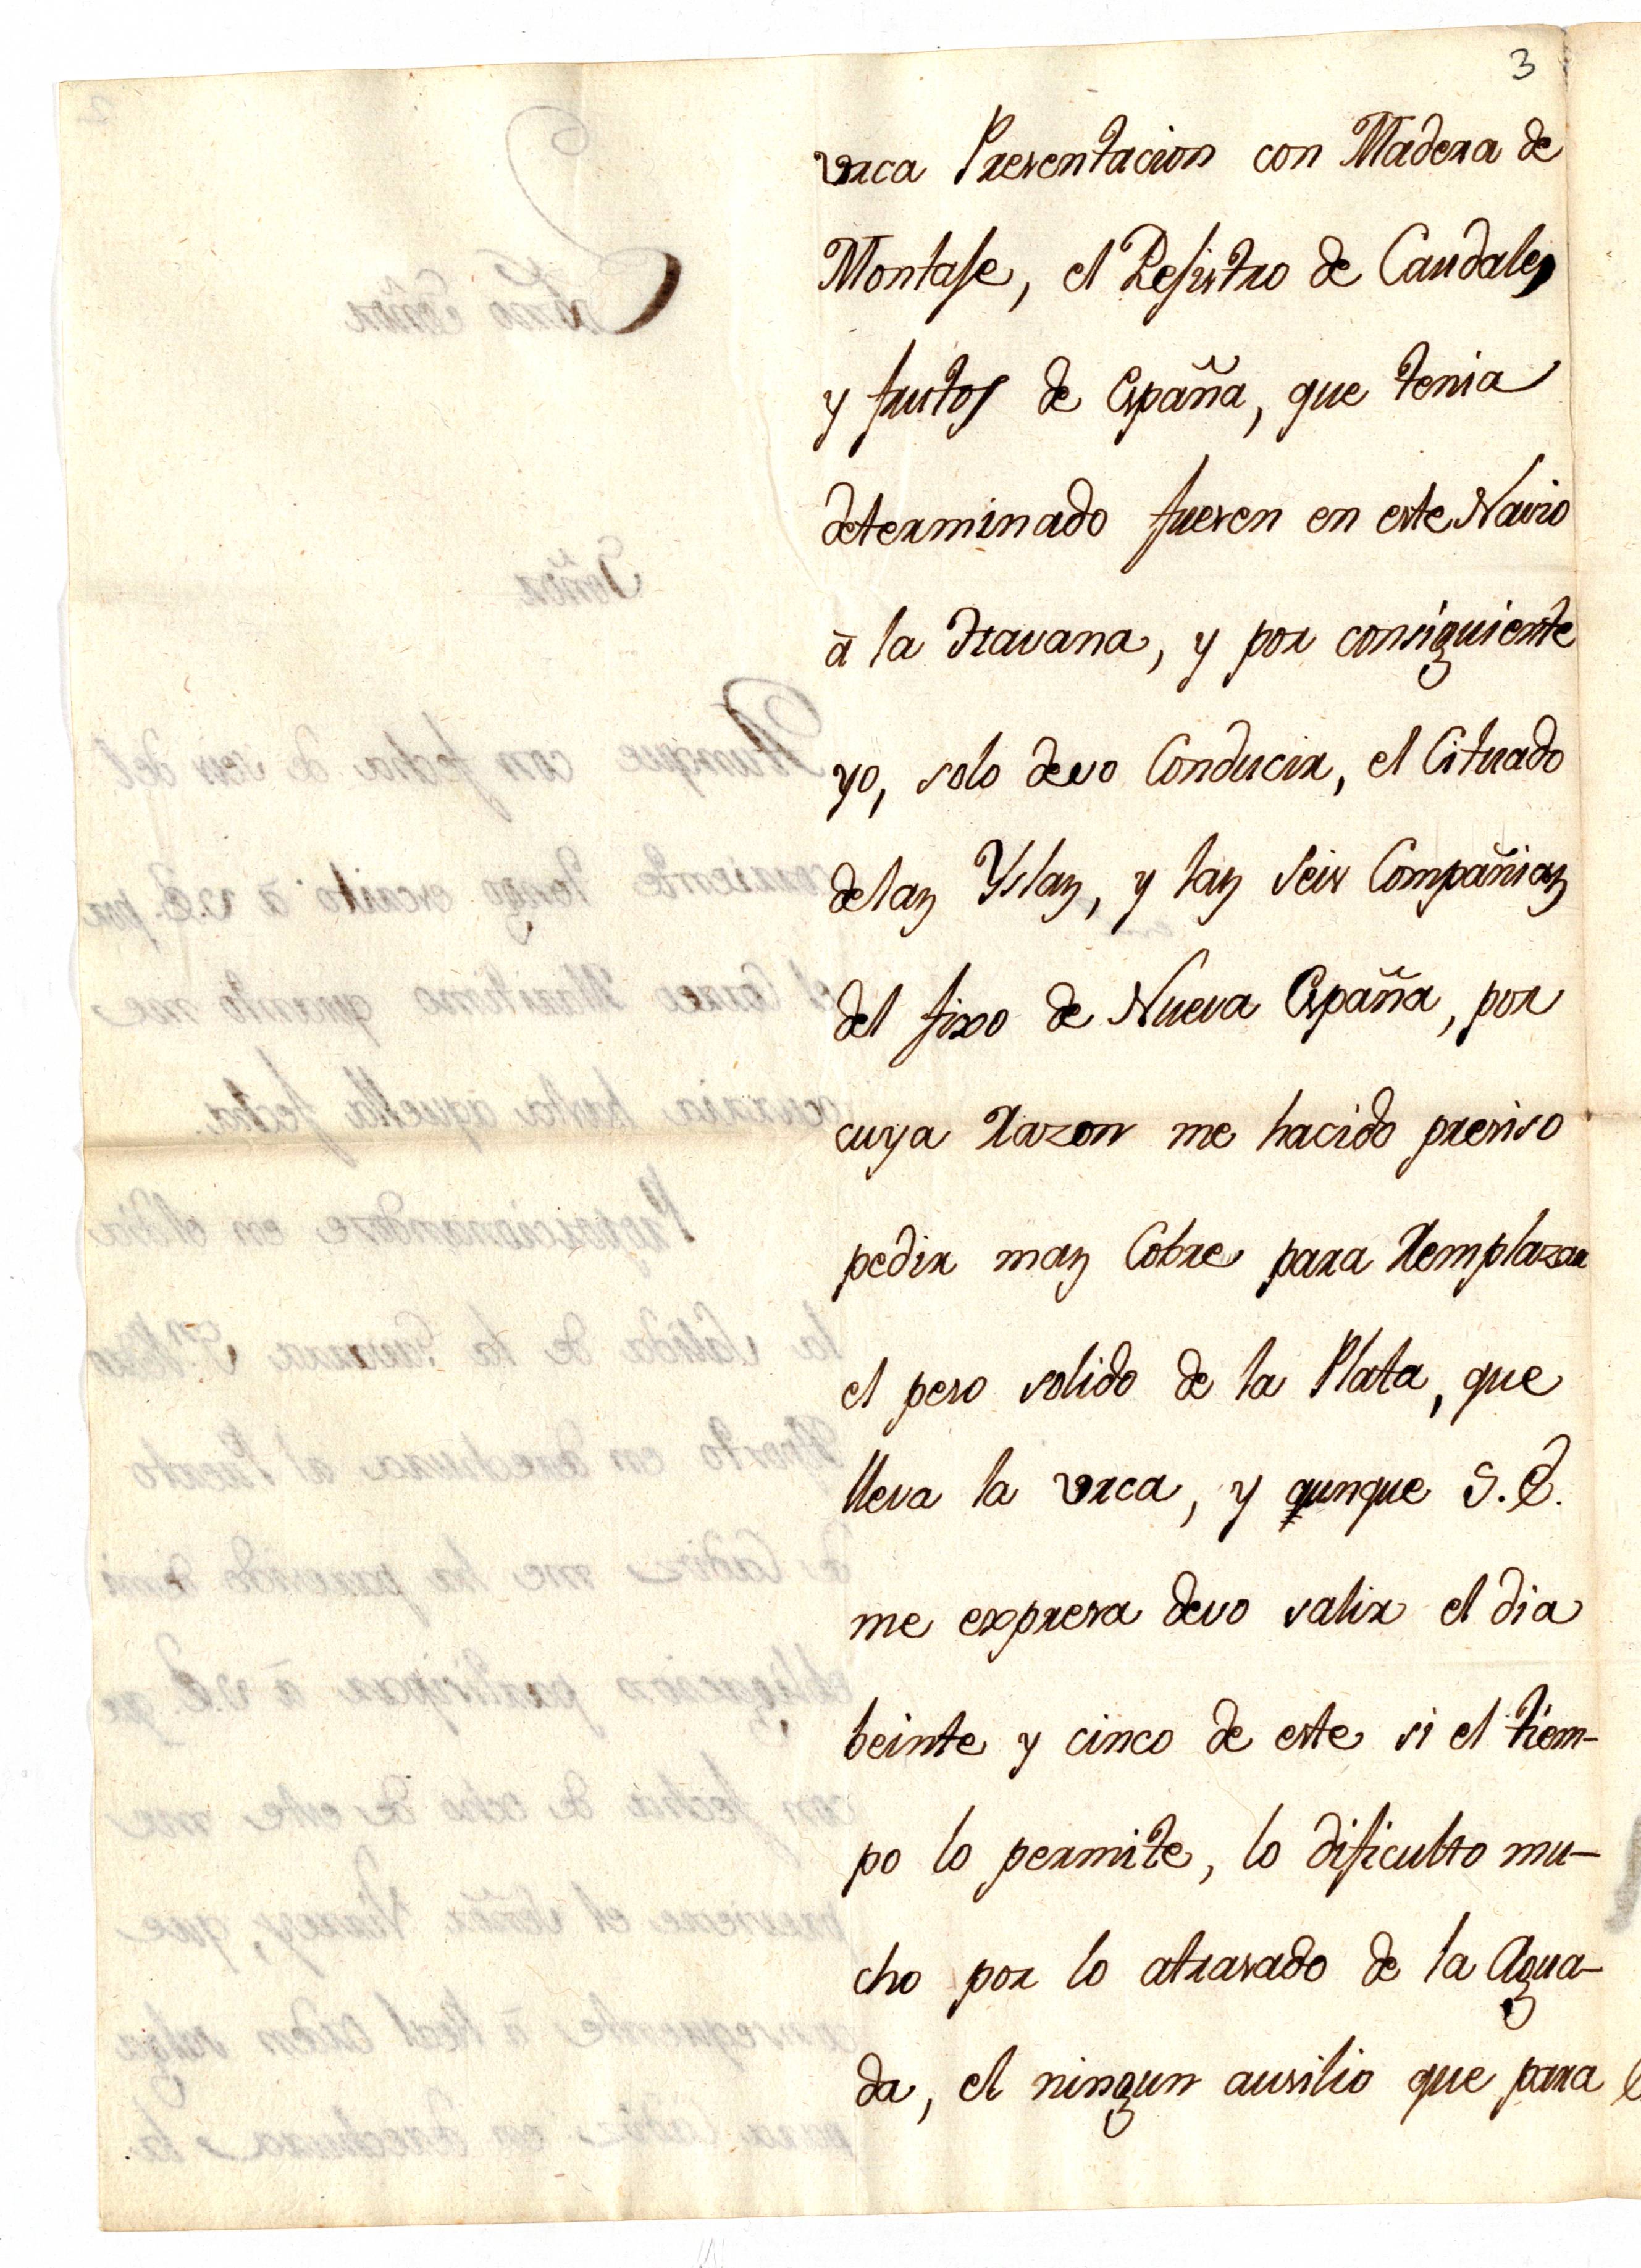 3
vrca Presentacion con Madera de
Montaje, el Rejistro de Caudales
y frutos de España, que tenia
determinado fuesen en este Navio
à la Havana, y por consiguiente
yo, solo devo Conducir, el Cituado
delas Yslas, y las seis Compañias
del fixo de Nueva España, por
cuya razon me hacido preciso
pedir mas Cobre para remplazar
el peso solido de la Plata, que
lleva la vrca, y aunque S.E.
me expresa devo salir el dia
beinte y cinco de este si el tiem-
po lo permite, lo dificulto mu-
cho por lo atrasado de la Agua-
da, el ningun ausilio que para